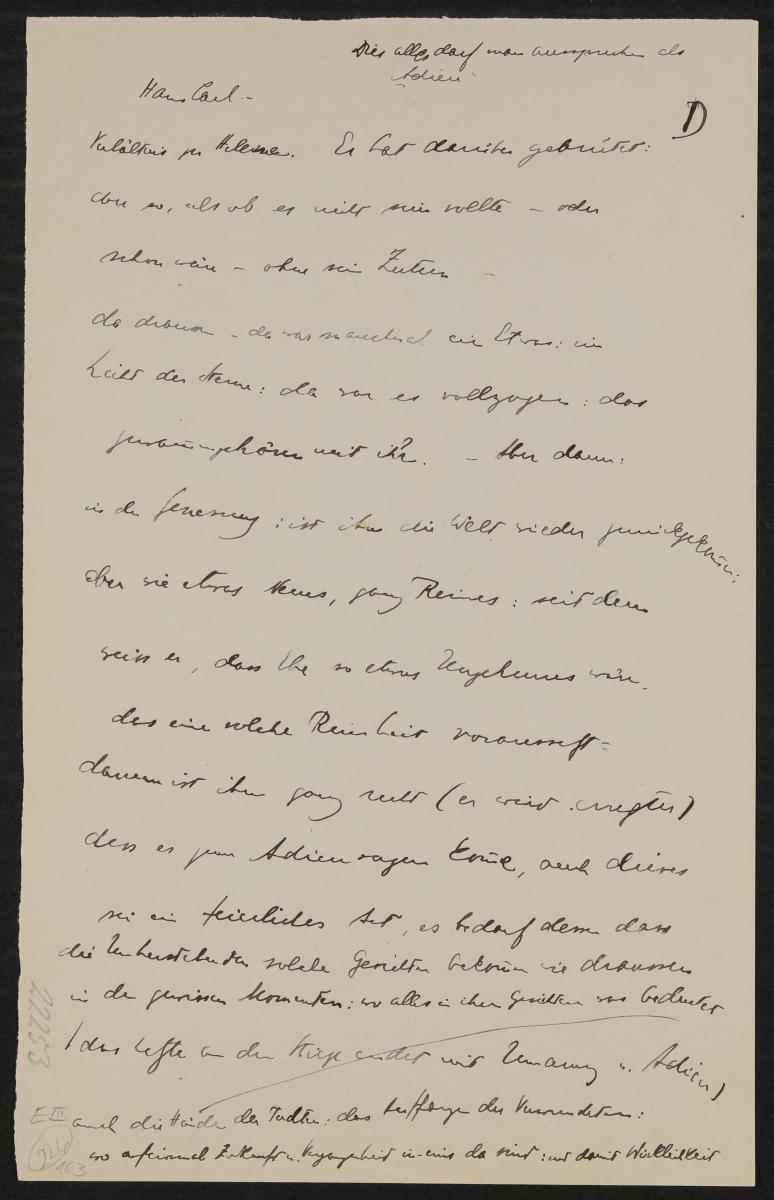 Dies alles darf man aussprechen als
Adieu
Hans Carl –
D
Verhältnis zu Helene. Er hat darüber gebrütet:
aber so, als ob es nicht sein sollte – oder
schon wäre – ohne sein Zutun –
da draussen – da war manchmal ein Etwas: im
Licht der Sterne: da war es vollzogen: das
zusammengehören mit ihr. – Aber dann:
in der Genesung: ist ihm die Welt wieder zurückgekommen:
aber wie etwas Neues, ganz Reines: seitdem
weiss er, dass Ehe so etwas Ungeheures wäre
das eine solche Reinheit voraussetzt –
darum ist ihm ganz recht (er wird erregter)
dass es zum Adieusagen komme, auch dieses
sei ein feierlicher Act, es bedarf dessen dass
die Umherstehenden solche Gesichter bekommen wie draussen
in den gewissen Momenten: wo alles in ihren Gesichtern was bedeutet
(das Letzte an der Stiege endet mit Umarmung u. Adieu)
auch die Hände der Todten: das der Verwundeten:
wo auf einmal Zukunft u. Vergangenheit in eins da sind: und damit Wirklichkeit
22253
E III
163